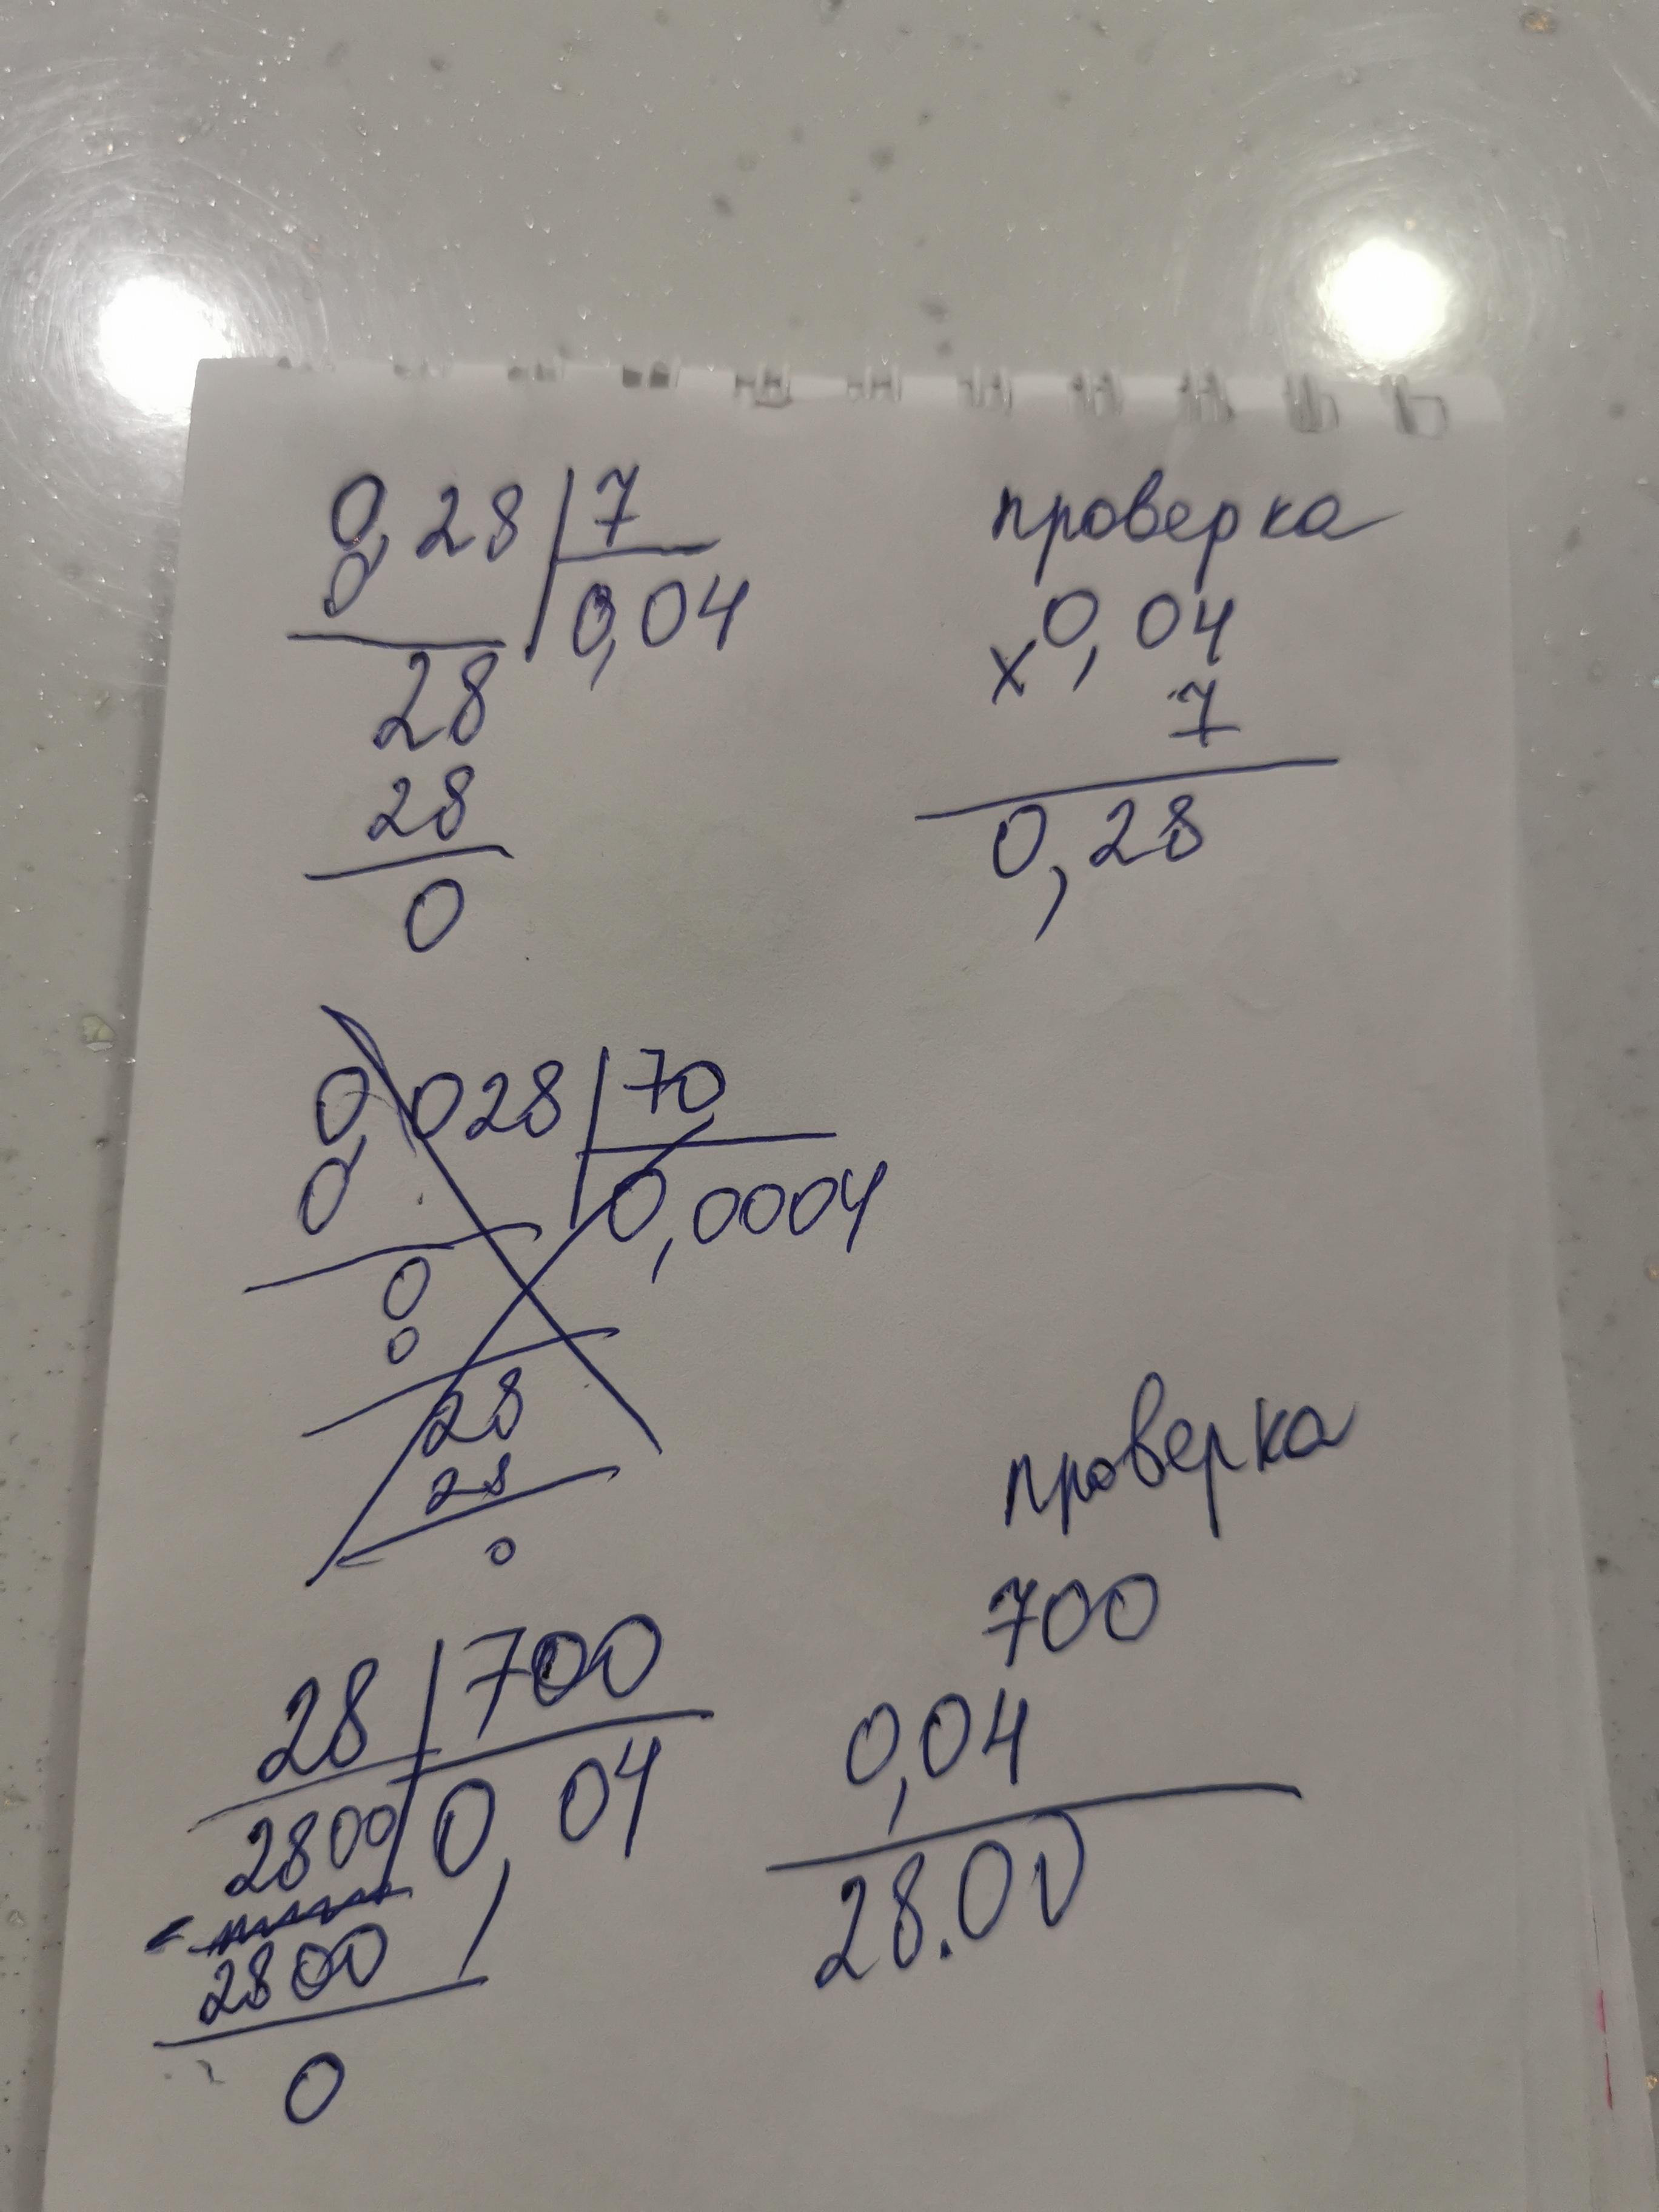 0,28 | 7
0
0,04
28
28
0
проверка
× 0,04
7
0,28
0,028 | 70
0
0,0004
0
0
28
28
0
28 | 700
2800 | 0,04
2800
0
проверка
700
0,04
28.00